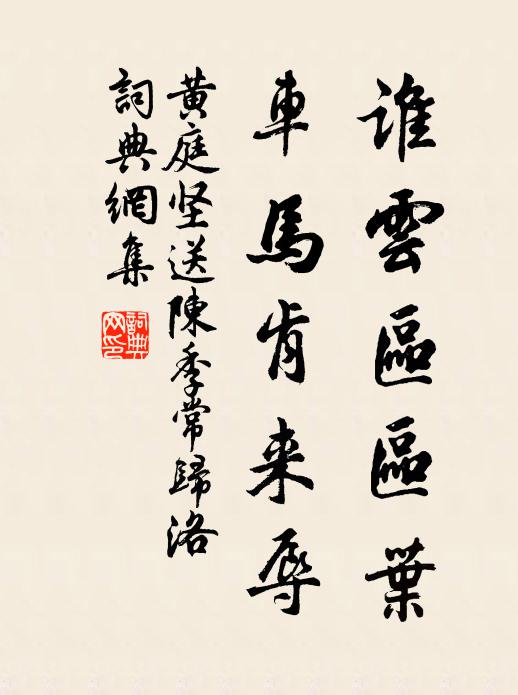 誰雲區區葉
車馬肯来辱
黄庭坚送陳季常歸洛
詞典網集
詞典
网印